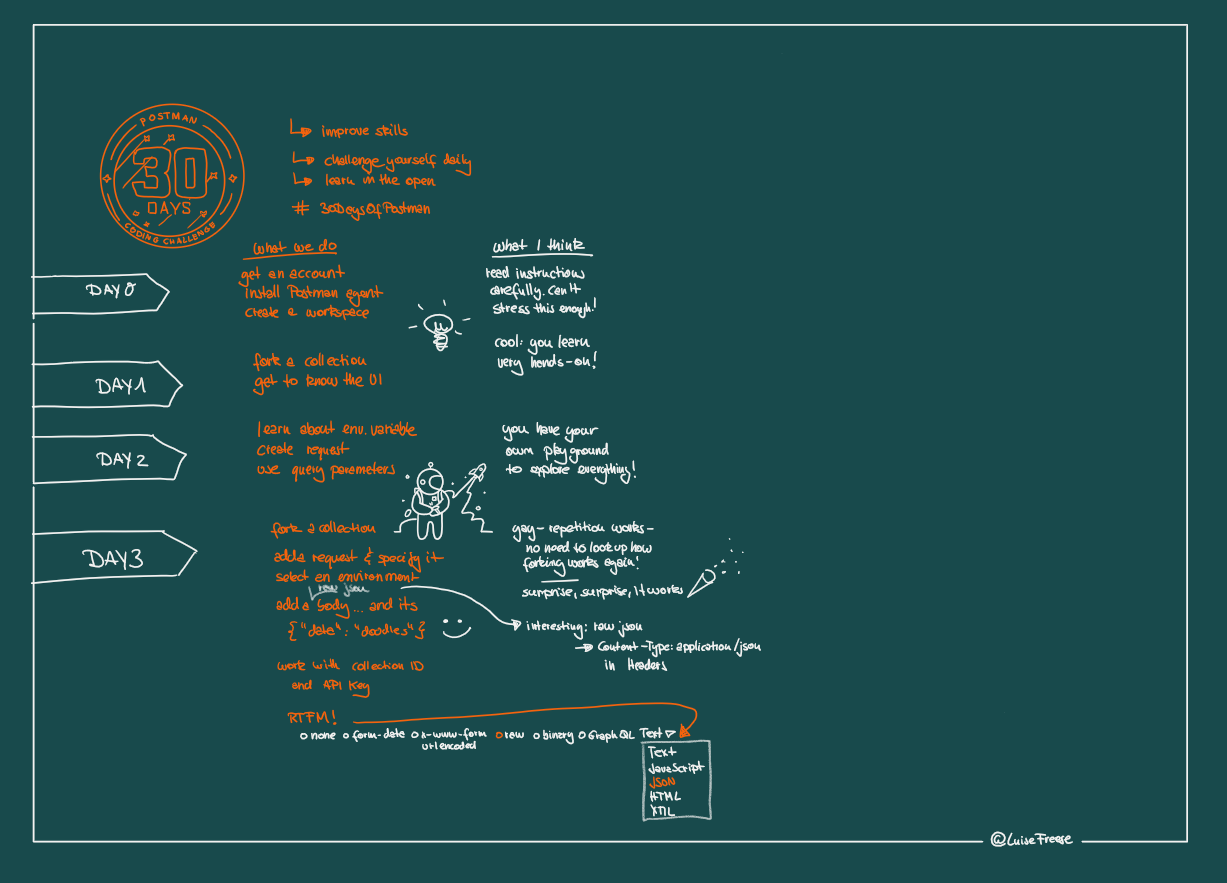 POSTMAN
30
DAYS
CODING CHALLENGE
improve skills
challenge yourself daily
learn in the open
# 30DaysOfPostman
what we do
what I think
DAY 0
get an account
install Postman agent
create a workspace
read instructions
carefully. Can't
stress this enough!
cool: you learn
very hands-on!
DAY 1
fork a collection
get to know the UI
DAY 2
learn about env. variable
create request
use query parameters
you have your
own playground
to explore everything!
DAY 3
fork a collection
add a request & specify it
select an environment
raw json
add a body... and its
{"date": "doodles"}
work with collection ID
and API Key
RTFM!
yay - repetition works -
no need to look up how
forking works again!
surprise, surprise, it works
interesting: raw json
Content-Type: application/json
in Headers
none form-data x-www-form urlencoded raw binary GraphQL Text
Text
JavaScript
JSON
HTML
XML
@LuiseFreese